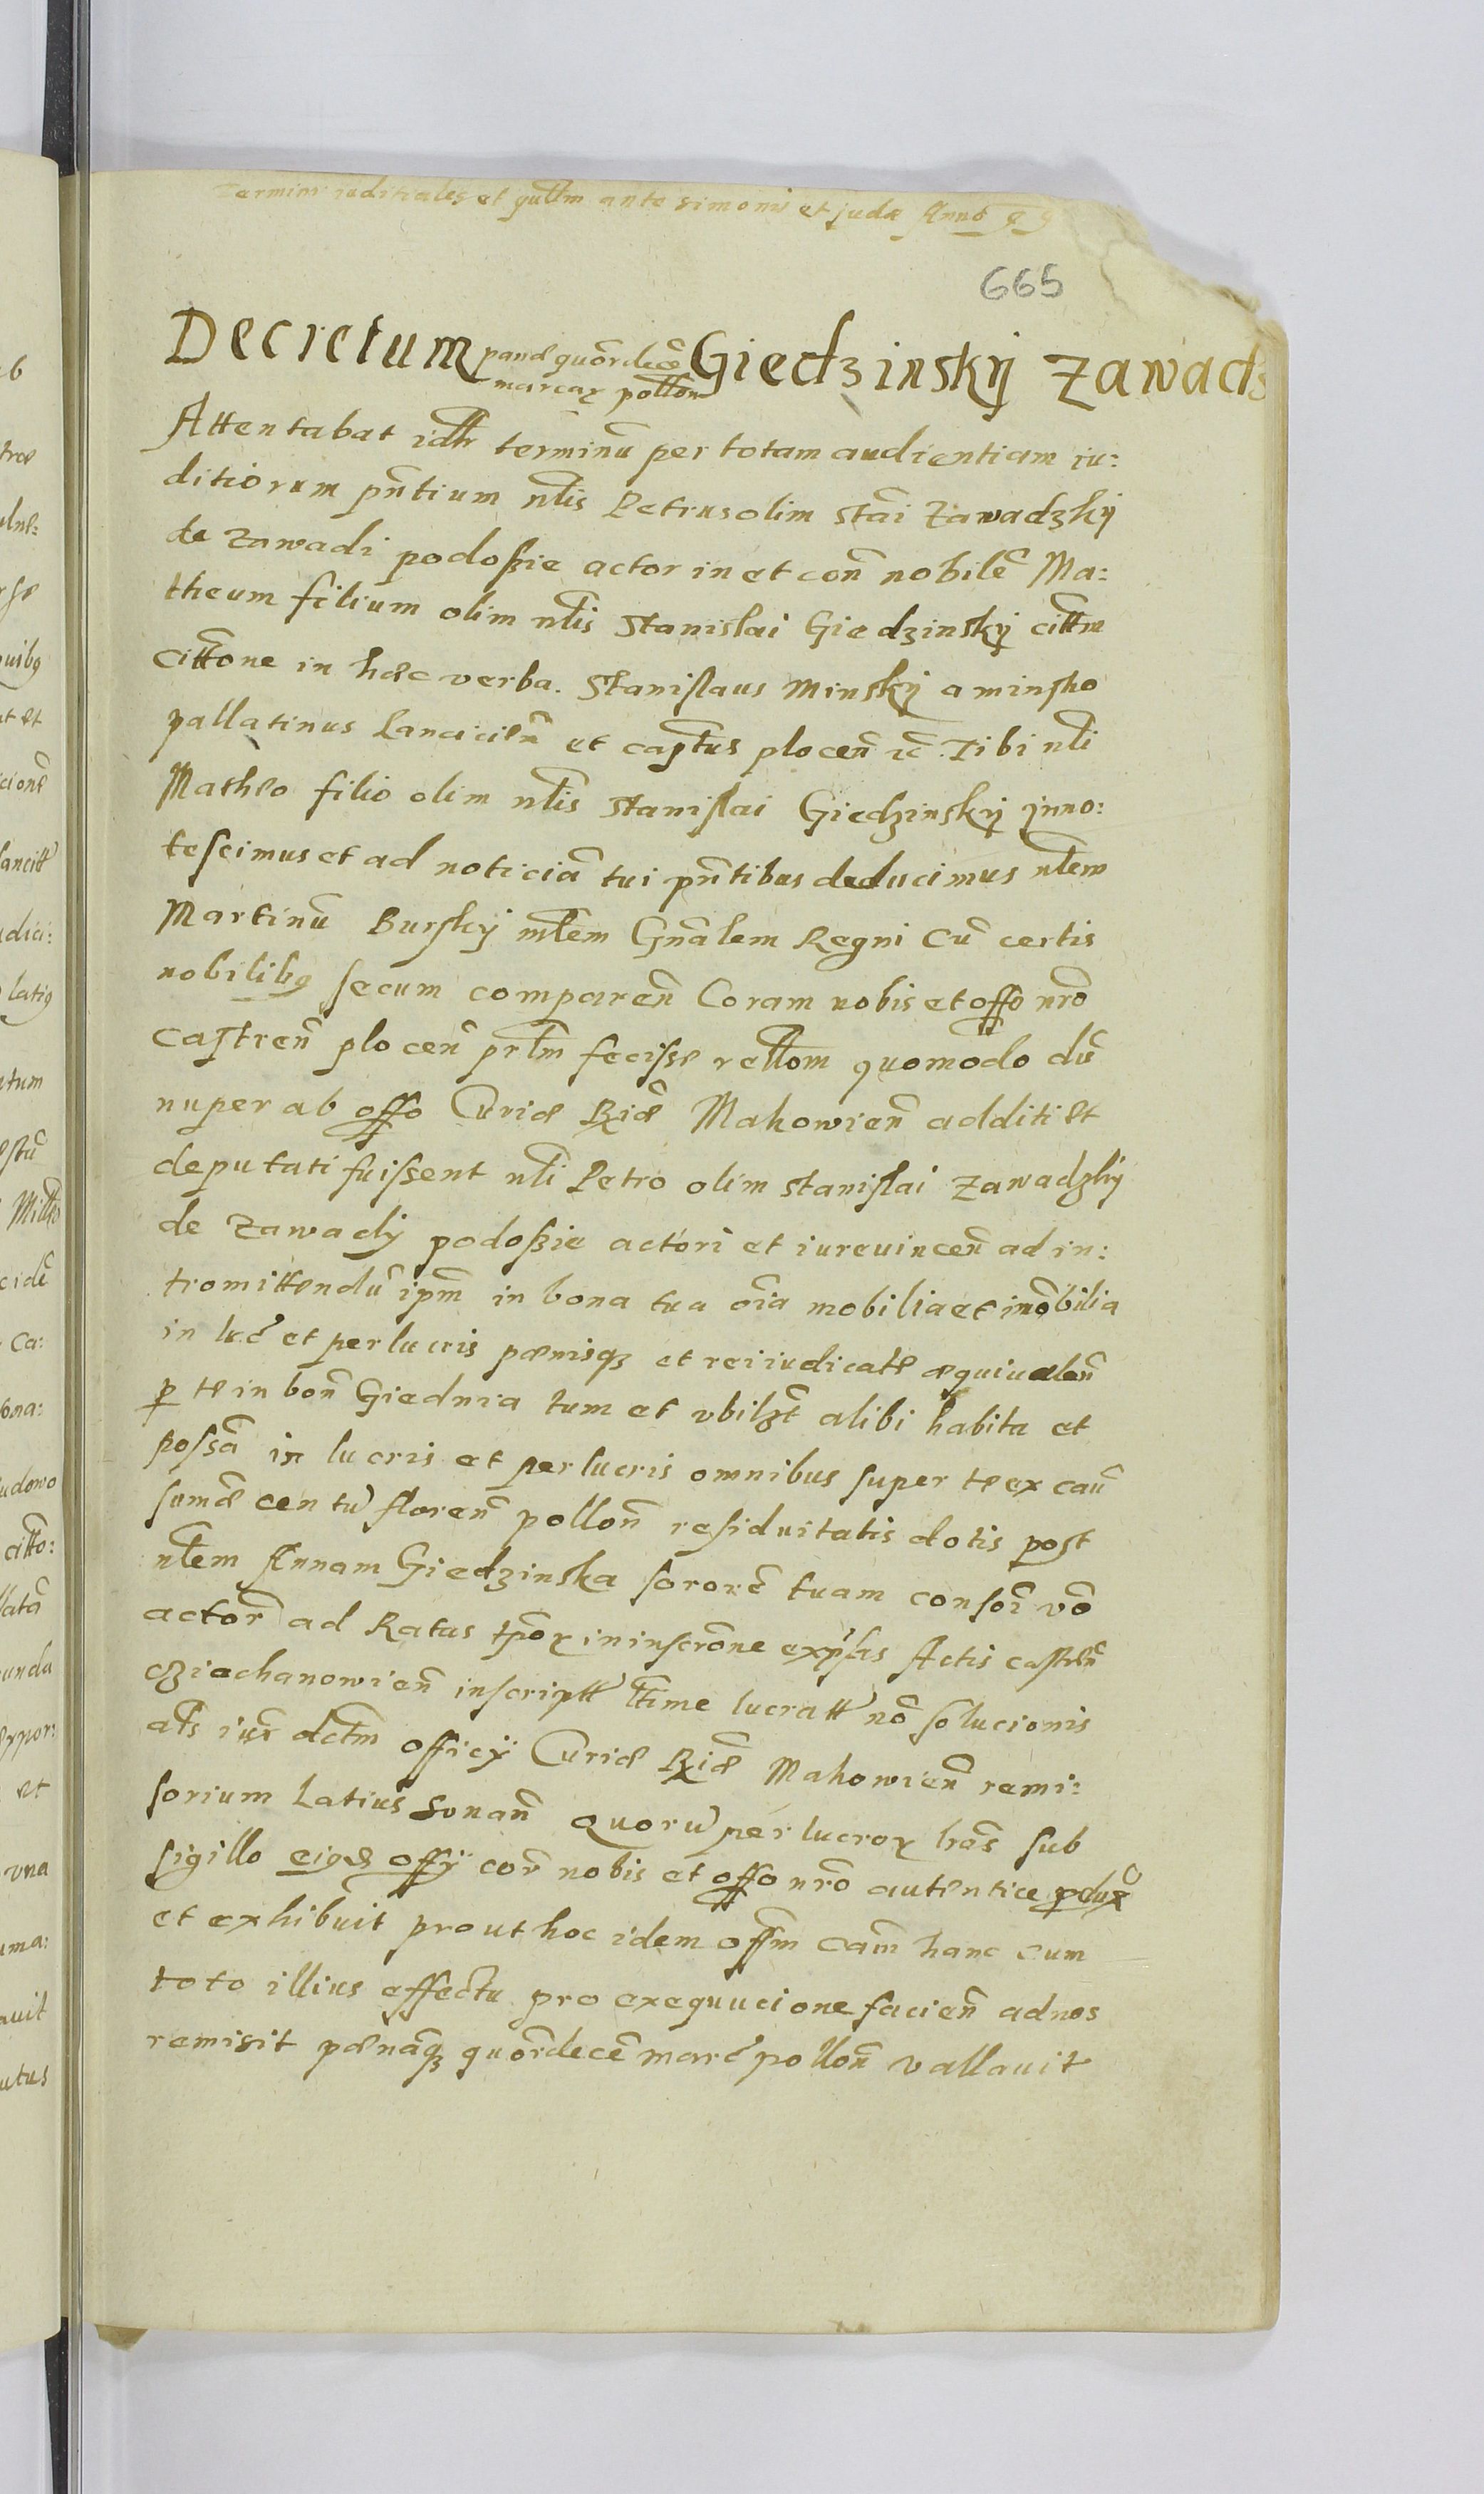 Termini juditiales et qullm ante simonis et judæ Anno 99
665
Decretum pænæ quõrdecẽ marcaꝝ pollon Giedzinskÿ Zawadz
Attentabat idtr terminũ per totam audientiam iu:
ditiorum pñtium nlis Petrus olim stãi Zawadzkÿ
de Zawadi podoßie actor in et con̄ nobilẽ Ma:
theum filium olim nlis Stanislai Giedzinskÿ cittm
cittone in hæc verba. Stanislaus Minskÿ a minsko
pallatinus Lancicien̄ et captus plocen̄ zc̄. Tibi nli
Matheo filio olim nlis Stanislai Giedzinskÿ jnno:
tescimus et ad noticiã tui pñtibus deducimus nlem
Martinũ Burskÿ mlem Gnãlem Regni Cũ certis
nobilibꝯ secum comparen̄ Coram nobis et offo nrõ
castren̄ plocen̄ prlm fecisse rellom quomodo dũ
nuper ab offo Curiæ Rjæ Makowien̄ additi et
deputati fuissent nli Petro olim stanislai Zawadzkÿ
de Zawadÿ podoßie actori et iureuincen̄ ad in:
tromittendũ ipm̄ in bona tua õia mobilia et im̃obilia
in luc̃ et perlucris pænisqꝫ et rei iudicatæ æquiualen̄
ꝑ te in bon̄ Giednia tum et vbilʒt alibi habita et
possã in lucris et perlucris omnibus super te ex cau̅
sumæ centũ floren̄ pollon̄ residuitatis dotis post
nlem Annam Giedzinska sororẽ tuam consor̃ võ
actor̃ ad Ratas tp̃oꝝ in inscrõne exp̃ssis Actis castren̄
cziechanowien̄ inscriptt ltime lucratt nõ solucionis
als iux̃ dctm officÿ Curiæ Rjæ Makowien̄ remi:
sorium Latius sonan̄ Quorũ perlucroꝝ lrãs sub
sigillo eiꝯd offÿ cor̃ nobis et offo nrõ autentice ꝓdux̃
et exhibuit prout hoc idem offm cam̃ hanc cum
toto illius effectu pro exequucione facien̄ ad nos
remisit pænãqꝫ quõrdecẽ marc̃ pollon̄ vallauit